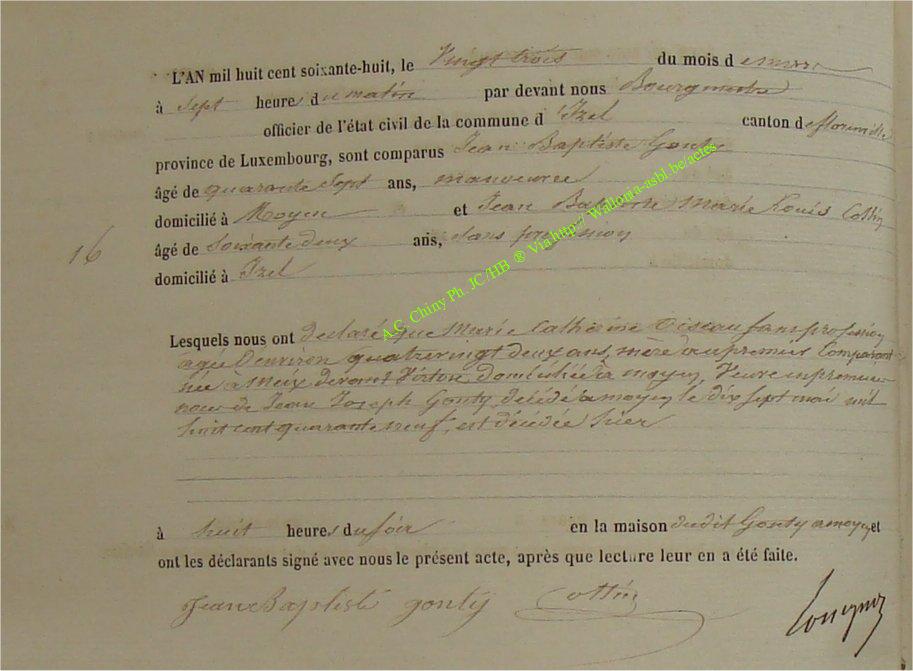 L'AN mil huit cent soixante-huit, le Vingt trois du mois de mars
à Sept heures du matin par devant nous Bourgmestre
officier de l'état civil de la commune d'Izel canton de florenville
province de Luxembourg, sont comparus Jean Baptiste Gonty
âgé de quarante Sept ans, manoeuvre
domicilié à Moyen et Jean Baptiste Marie Louis Collin
16
âgé de Soixante deux ans, Sans profession
domicilié à Izel
Lesquels nous ont declaré que Marie Catherine Oiseau sans profession
agée D'environ quatre vingt deux ans, mère au premier Comparant
née a Meix devant Virton domiciliée à moyen, Veuve en premiere
noce de Jean Joseph Gonty décédé a moyen le dix sept mai mil
huit cent quarante neuf, est décédée hier
à huit heures du soir en la maison dudit Gonty a moyen et
ont les déclarants signé avec nous le présent acte, après que lecture leur en a été faite.
Jean Baptiste gonty Collin
A.C. Chiny Ph. JC/HB ® Via http://Wallonia-asbl.be/actes